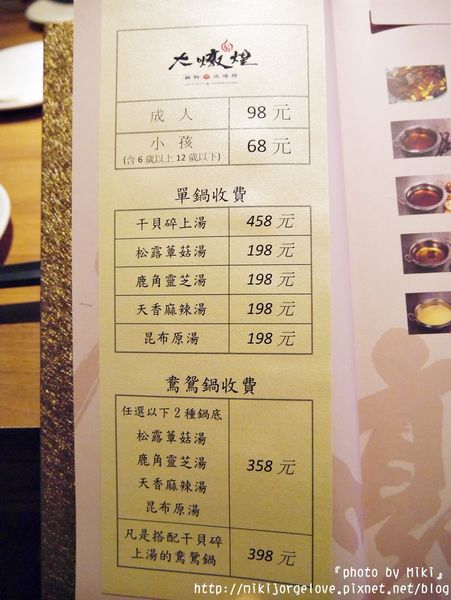 大燉煌
成人 98 元
小孩 68 元
(含 6 歲以上 12 歲以下)
單鍋收費
干貝碎上湯 458 元
松露蕈菇湯 198 元
鹿角靈芝湯 198 元
天香麻辣湯 198 元
昆布原湯 198 元
鴛鴦鍋收費
任選以下 2 種鍋底
松露蕈菇湯
鹿角靈芝湯
天香麻辣湯
昆布原湯
358 元
凡是搭配干貝碎
上湯的鴛鴦鍋
398 元
『photo by Miki』
http://mikijorgelove.pixnet.net/blog